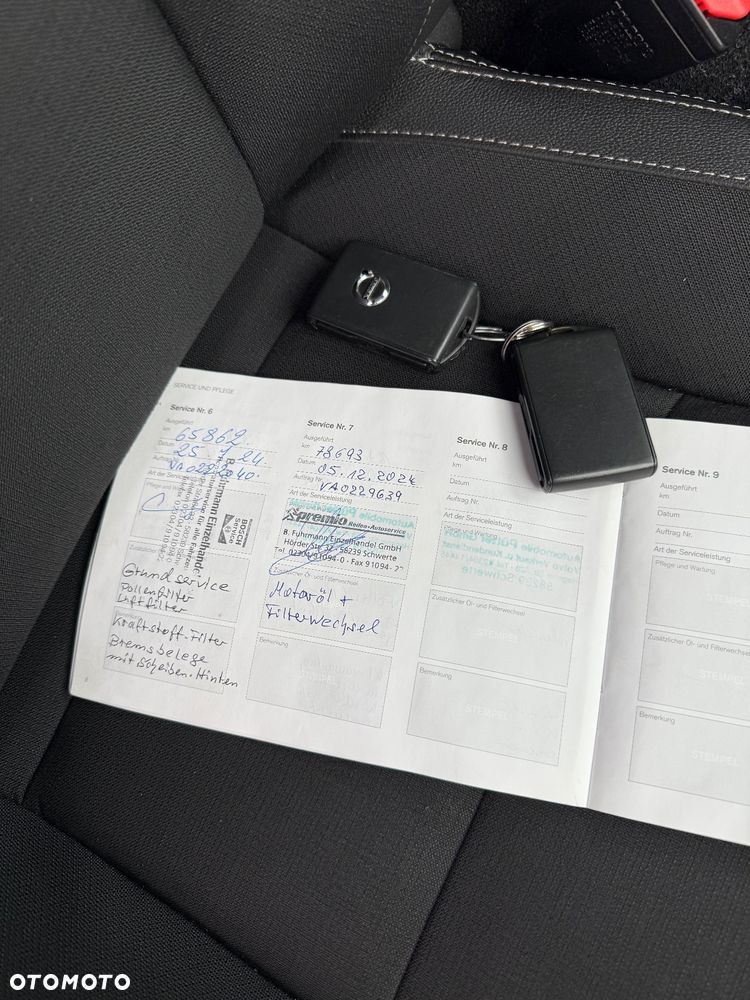 SERVICE UND PFLEGE
Service Nr. 6
Ausgeführt
km 65862
Datum 25 7 24
VA0222040
Art der Serviceleistung
Pflege und
BOSCH
Service
Einzelhandel
Grundservice
Pollenfilter
Luftfilter
Kraftstoff-Filter
Bremsbelege
mit Scheiben-Hinten
Service Nr. 7
Ausgeführt
km 78693
Datum 05.12.2024
Auftrag Nr.
VA0229639
Art der Serviceleistung
premio Reifen+Autoservice
B. Fuhrmann Einzelhandel GmbH
Hörder Str. 58239 Schwerte
Tel 02304/91094-0 - Fax 91094-
Öl- und Filterwechsel
Motoröl +
Filterwechsel
Bemerkung
STEMPEL
Service Nr. 8
Ausgeführt
km
Datum
Auftrag Nr.
Art der Serviceleistung
Zusätzlicher Öl- und Filterwechsel
STEMPEL
Bemerkung
STEMPEL
Service Nr. 9
Ausgeführt
km
Datum
Auftrag Nr.
Art der Serviceleistung
Pflege und Wartung
STEMPEL
Zusätzlicher Öl- und Filterwechsel
STEMPEL
Bemerkung
STEMPEL
OTOMOTO